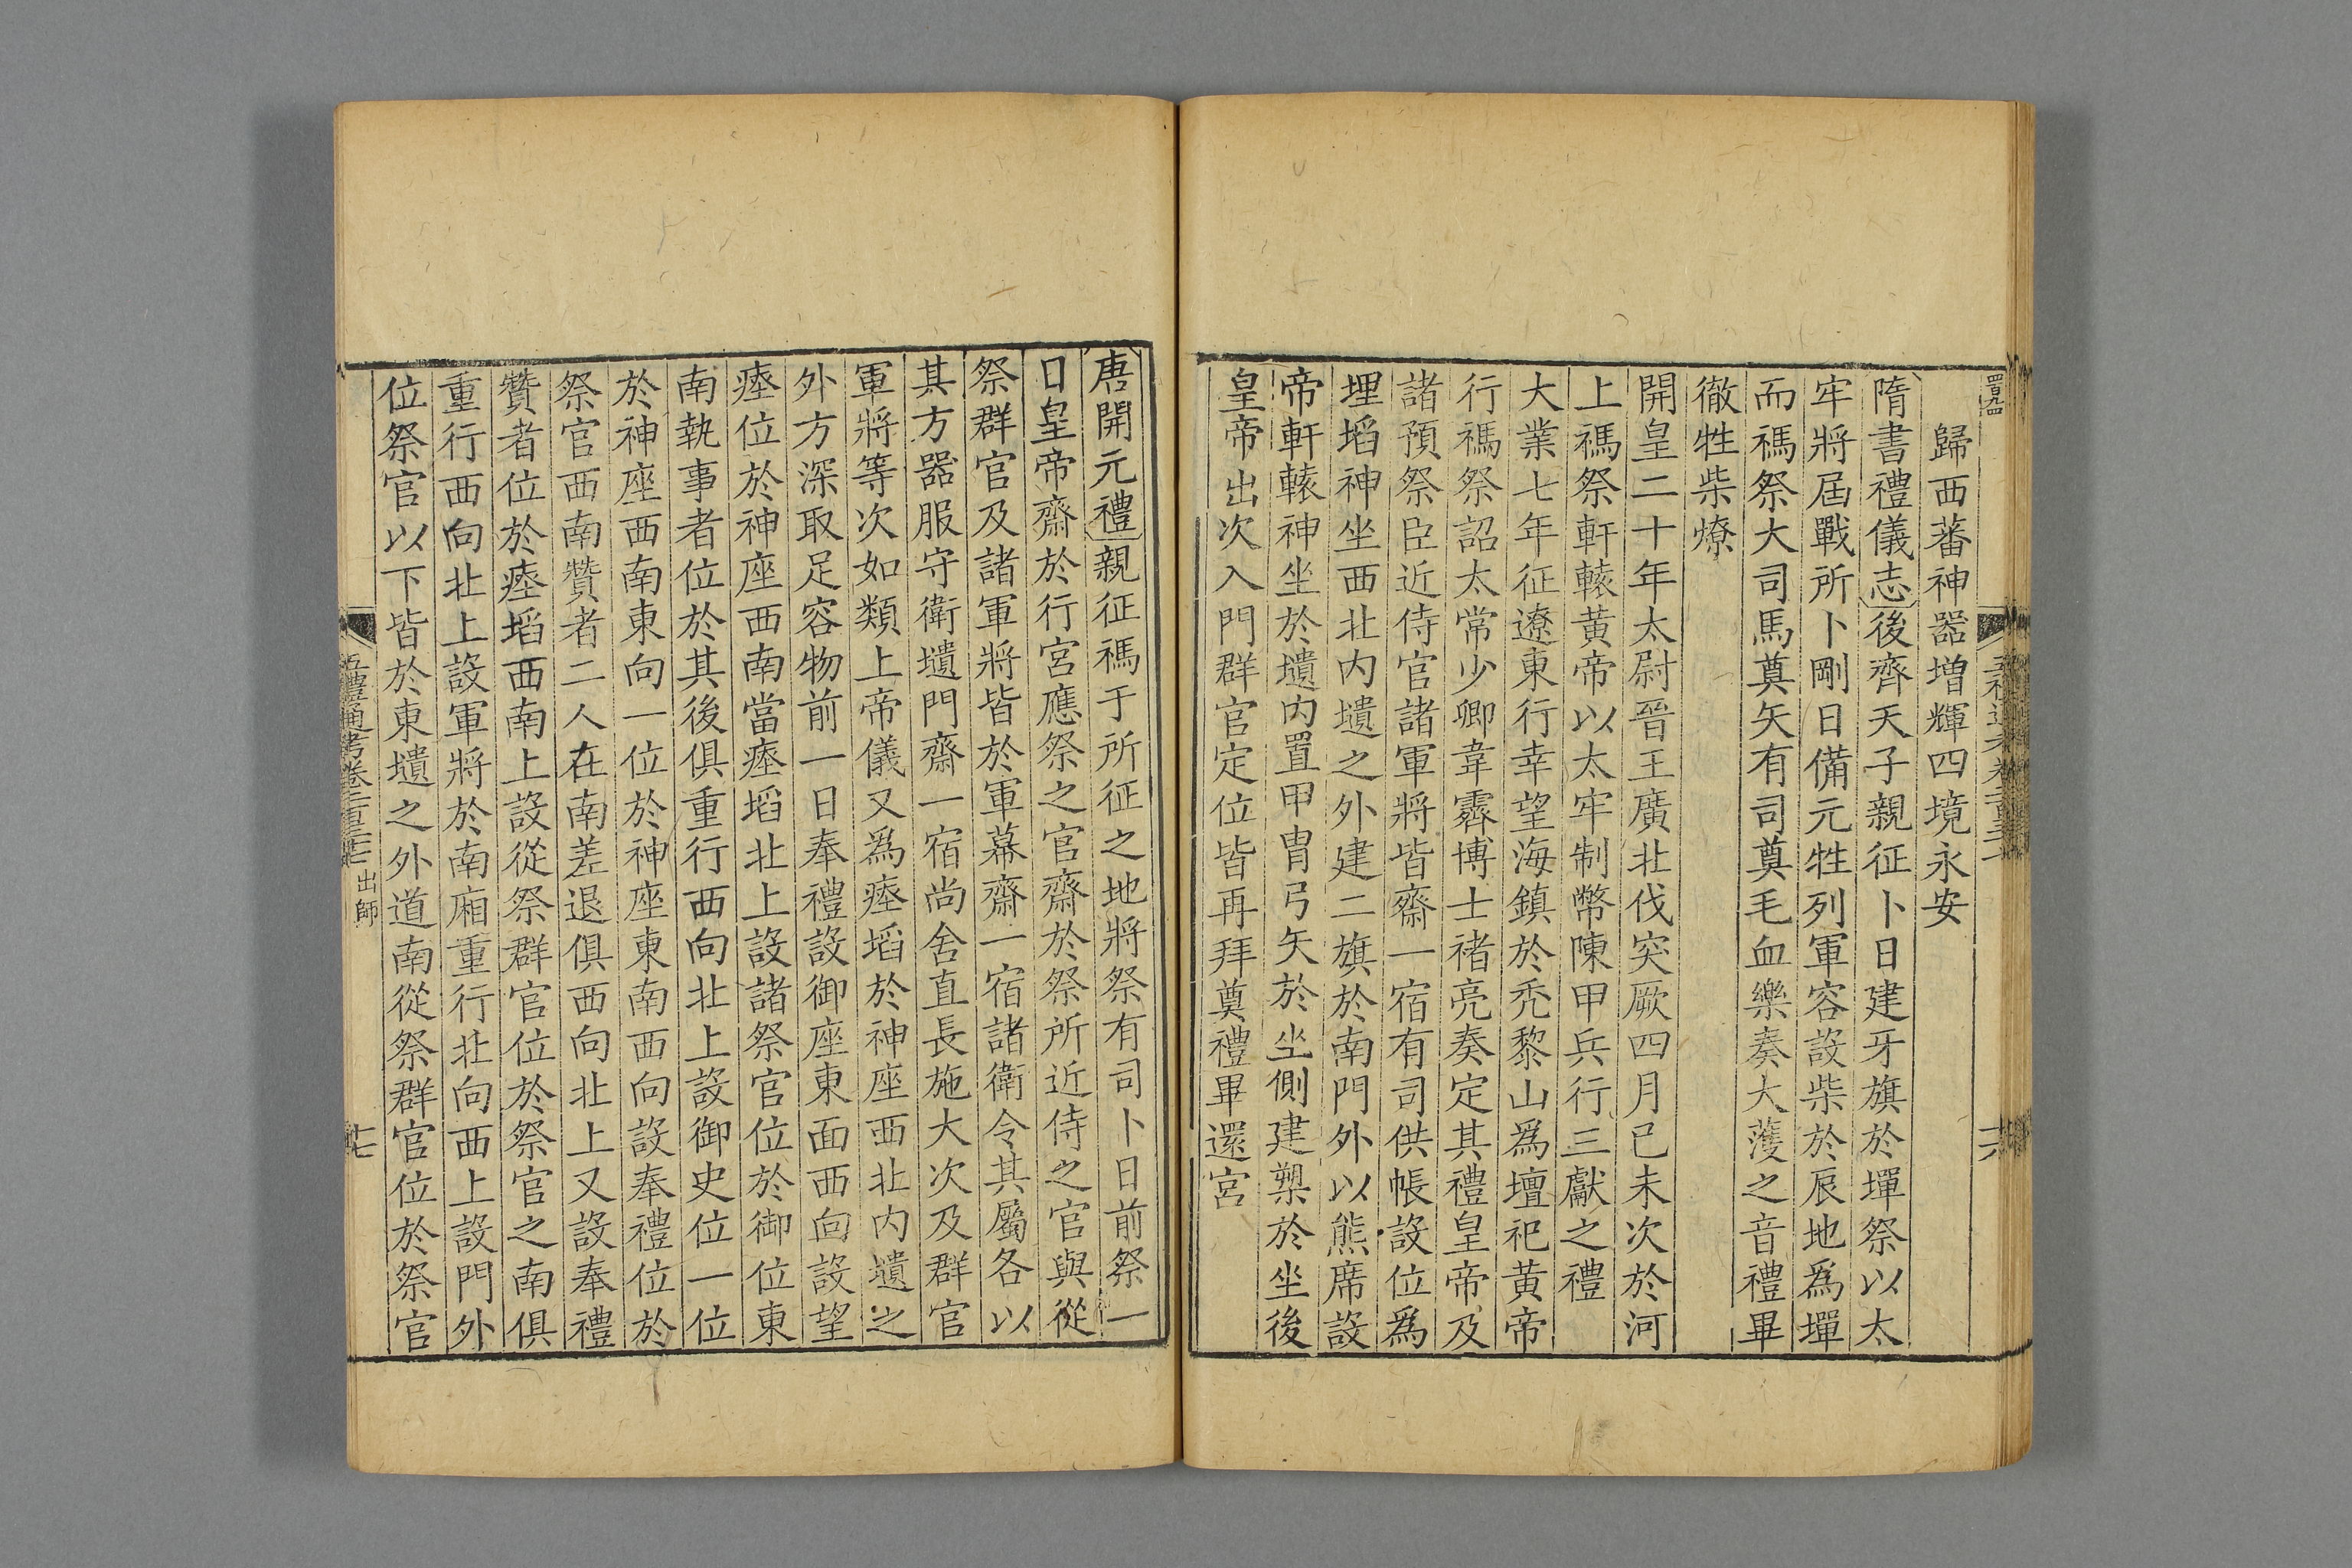 歸西蕃神器增輝四境永安
隋書禮儀志後齊天子親征卜日建牙旗於墠祭以太
牢將屆戰所卜剛日備元牲列軍容設柴於辰地爲墠
而禡祭大司馬奠矢有司奠毛血樂奏大濩之音禮畢
徹牲柴燎
開皇二十年太尉晉王廣北伐突厥四月己未次於河
上禡祭軒轅黃帝以太牢制幣陳甲兵行三獻之禮
大業七年征遼東行幸望海鎮於禿黎山爲壇祀黃帝
行禡祭詔太常少卿韋霽博士褚亮奏定其禮皇帝及
諸預祭臣近侍官諸軍將皆齋一宿有司供帳設位爲
埋埳神坐西北內壝之外建二旗於南門外以熊席設
帝軒轅神坐於壝內置甲冑弓矢於坐側建槊於坐後
皇帝出次入門群官定位皆再拜奠禮畢還宮
唐開元禮親征禡于所征之地將祭有司卜日前祭一
日皇帝齋於行宮應祭之官齋於祭所近侍之官與從
祭群官及諸軍將皆於軍幕齋一宿諸衛令其屬各以
其方器服守衛壝門齋一宿尚舍直長施大次及群官
軍將等次如類上帝儀又爲瘞埳於神座西北內壝之
外方深取足容物前一日奉禮設御座東面西向設望
瘞位於神座西南當瘞埳北上設諸祭官位於御位東
南執事者位於其後俱重行西向北上設御史位一位
於神座西南東向一位於神座東南西向設奉禮位於
祭官西南贊者二人在南差退俱西向北上又設奉禮
贊者位於瘞埳西南上設從祭群官位於祭官之南俱
重行西向北上設軍將於南廂重行北向西上設門外
位祭官以下皆於東壝之外道南從祭群官位於祭官
五禮通考卷二百三十七 出師
十七